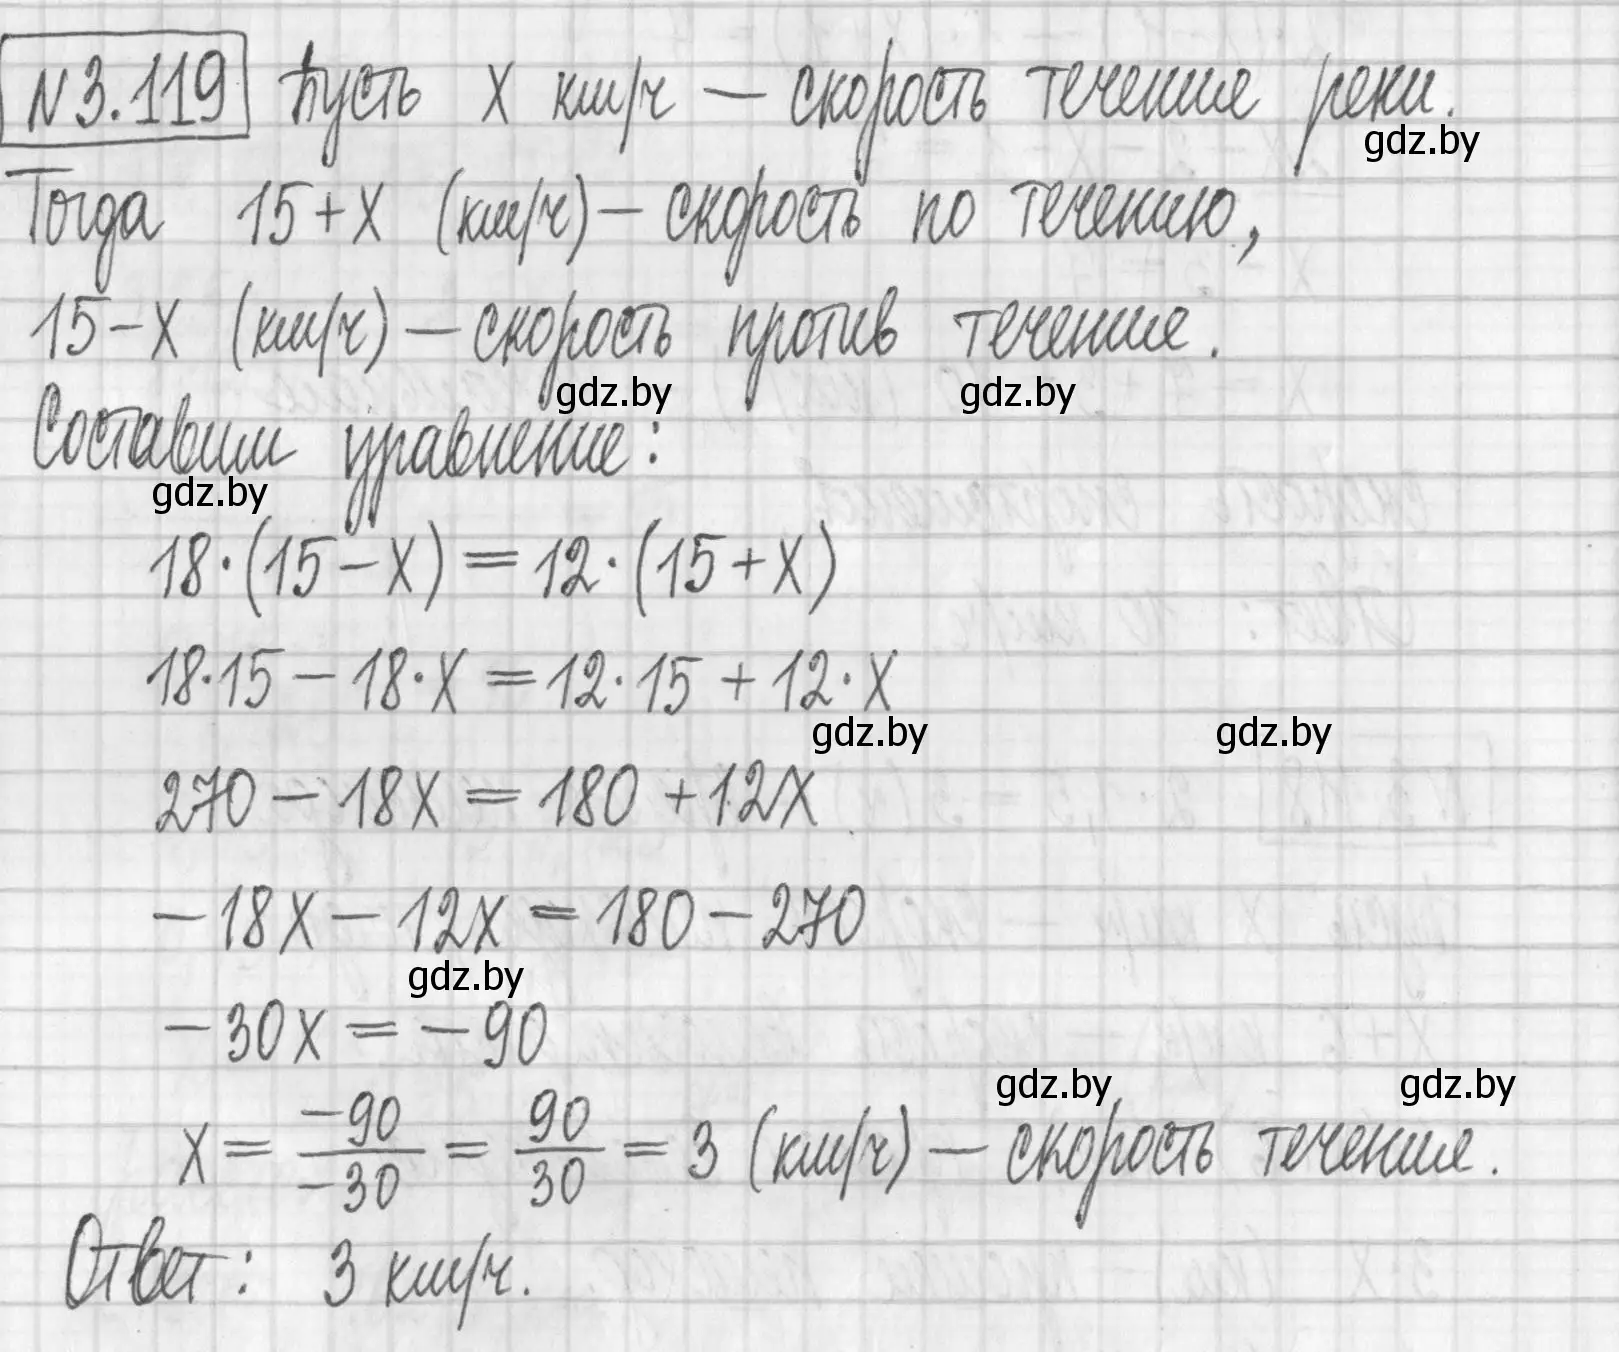 №3.119 Пусть х км/ч — скорость течения реки.
gdz.by
Тогда 15+х (км/ч) — скорость по течению,
15-х (км/ч) — скорость против течения.
gdz.by gdz.by
Составим уравнение:
gdz.by
18·(15-х)=12·(15+х)
18·15-18·х=12·15+12·х
gdz.by gdz.by
270-18х=180+12х
-18х-12х=180-270
gdz.by
-30х=-90
gdz.by gdz.by
х=-90/-30=90/30=3 (км/ч) — скорость течения.
Ответ: 3 км/ч.